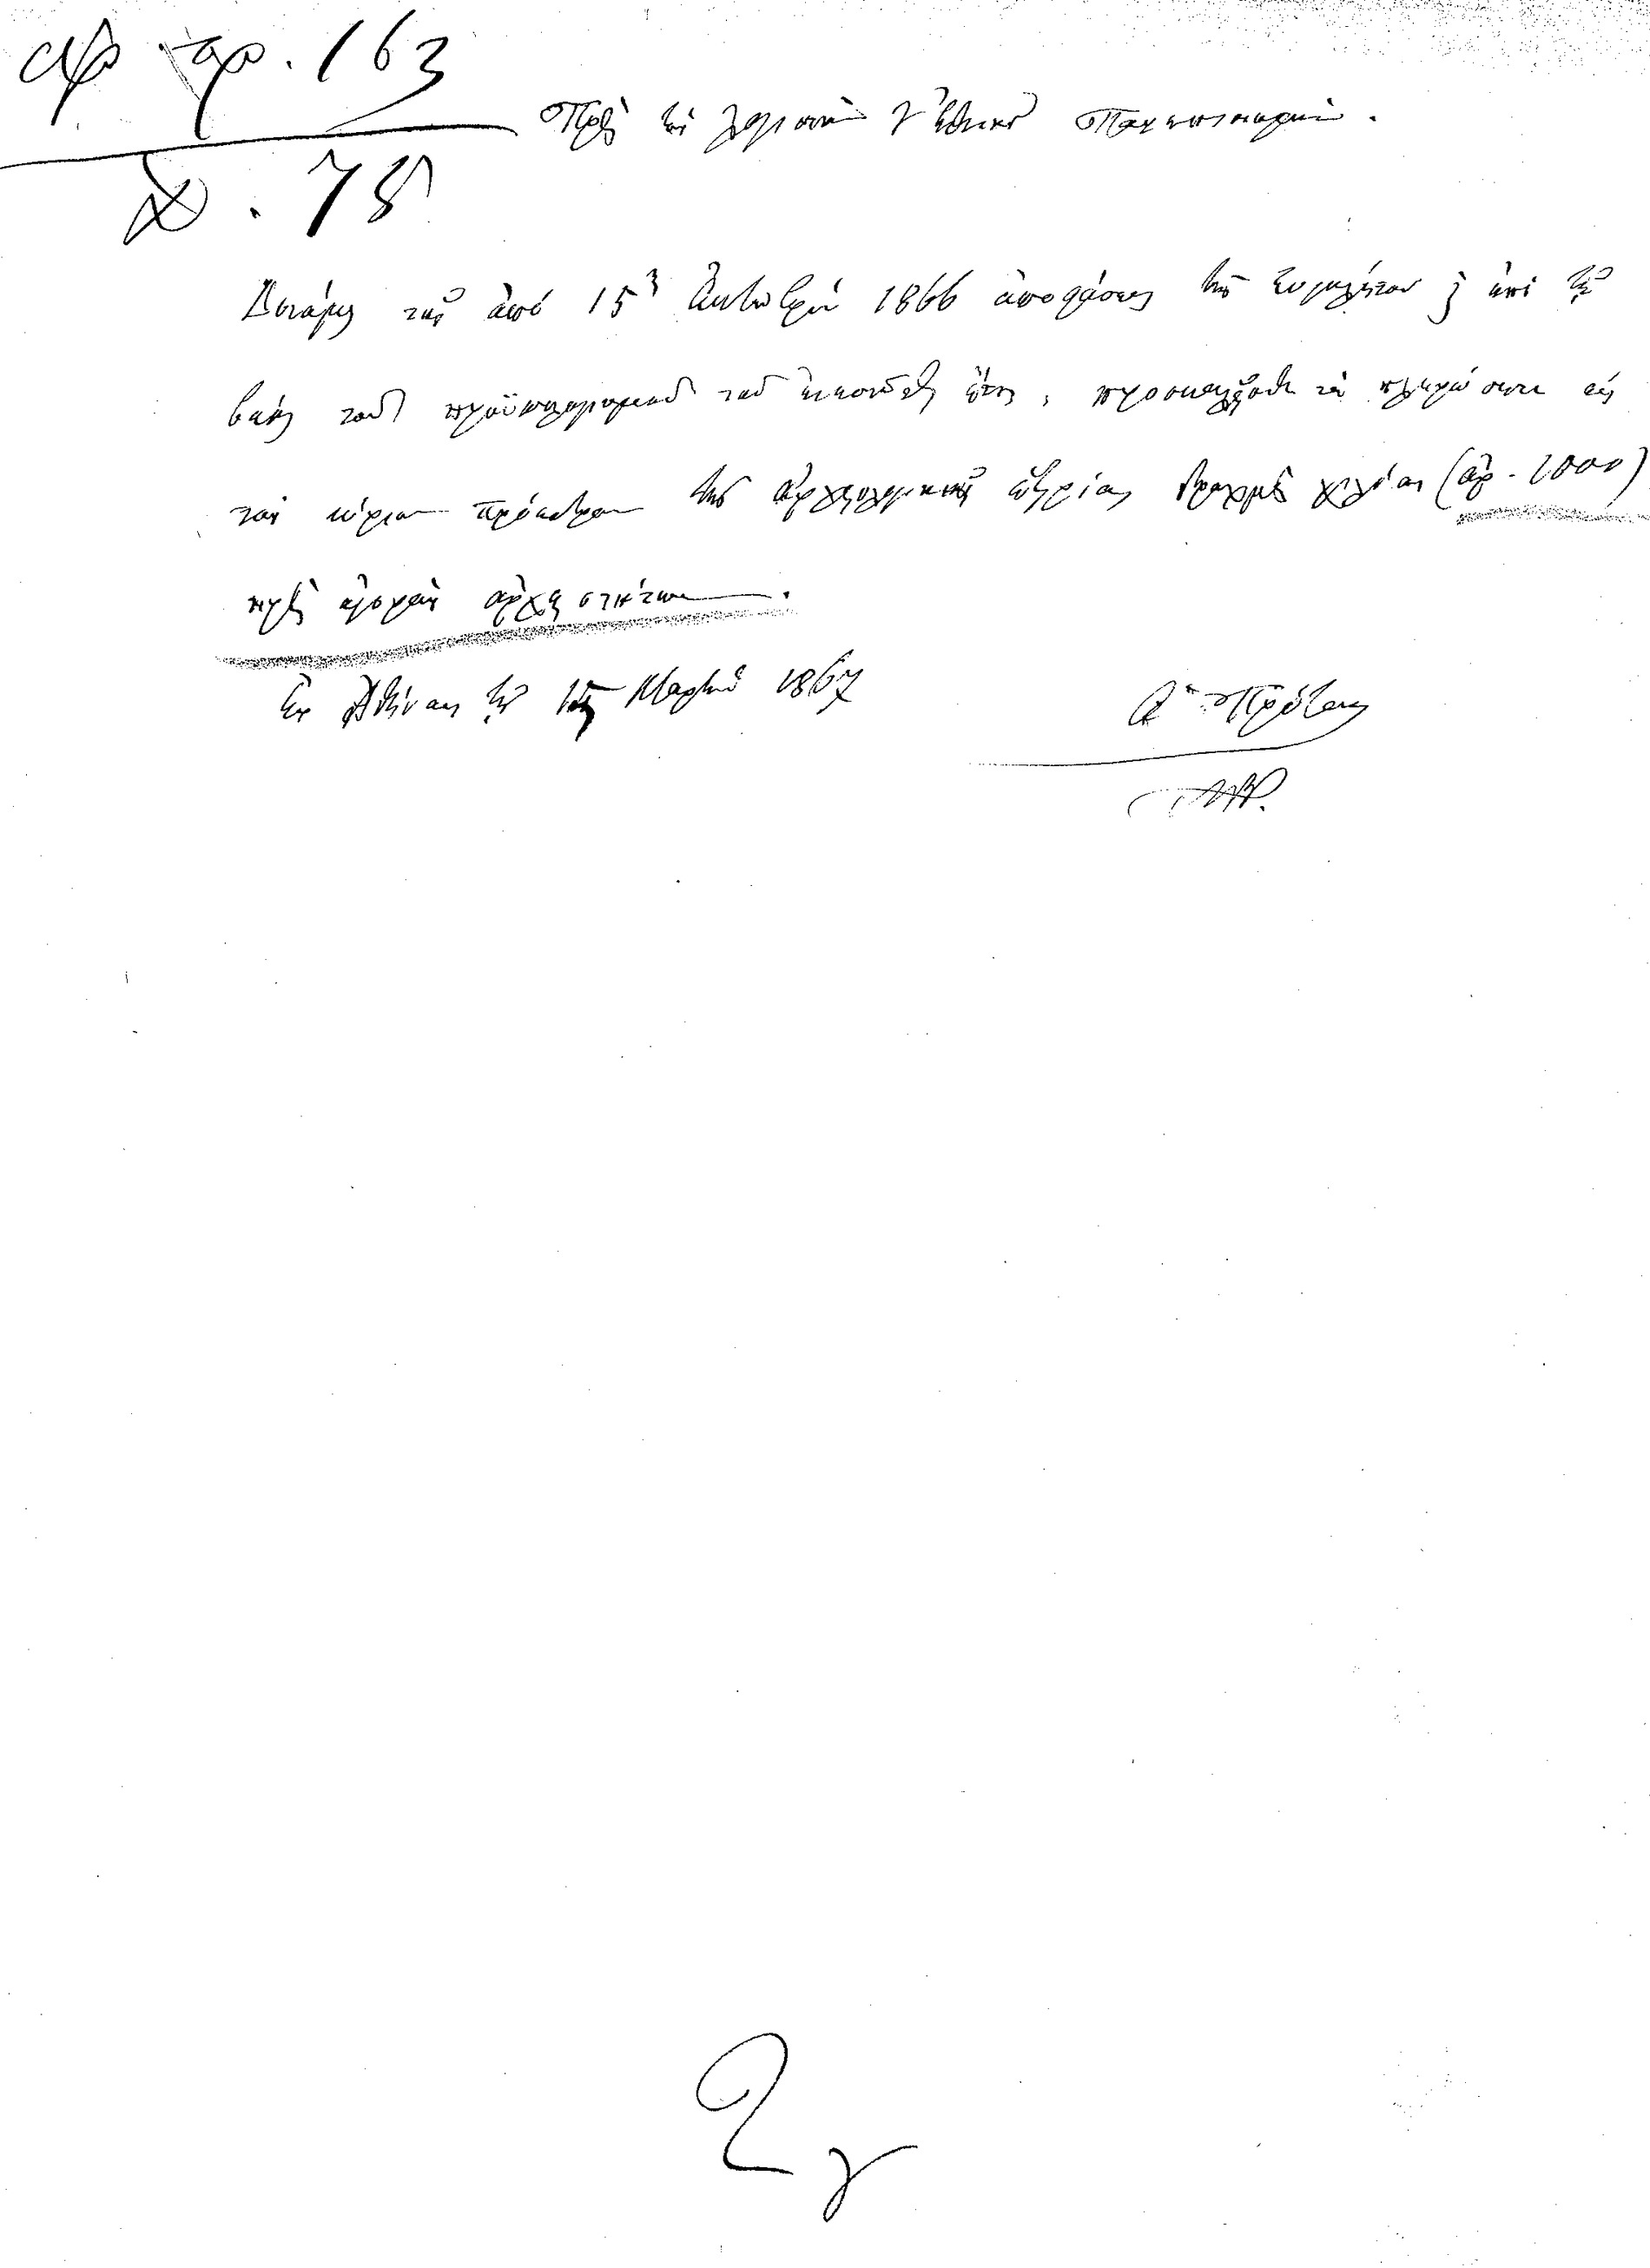 ἀρ. πρ. 163
Δ. 78
Πρὸς τὸν λογιστὴν τοῦ Ἐθνικοῦ Πανεπιστημίου.
Δυνάμει τῆς ἀπὸ 15 Ὀκτωβρίου 1866 ἀποφάσεως τῆς Συγκλήτου ἐπὶ τῇ
βάσει τοῦ προϋπολογισμοῦ τοῦ ἐνεστῶτος ἔτους, προσκαλεῖσθε νὰ πληρώσητε εἰς
τὸν κύριον πρόεδρον τῆς ἀρχαιολογικῆς ἑταιρίας δραχμὰς χιλίας (δρ. 1000)
πρὸς ἀγορὰν ἀρχαιοτήτων.
Ἐν Ἀθήναις τῇ Μαρτίου 1867
Ὁ Πρύτανις
2γ